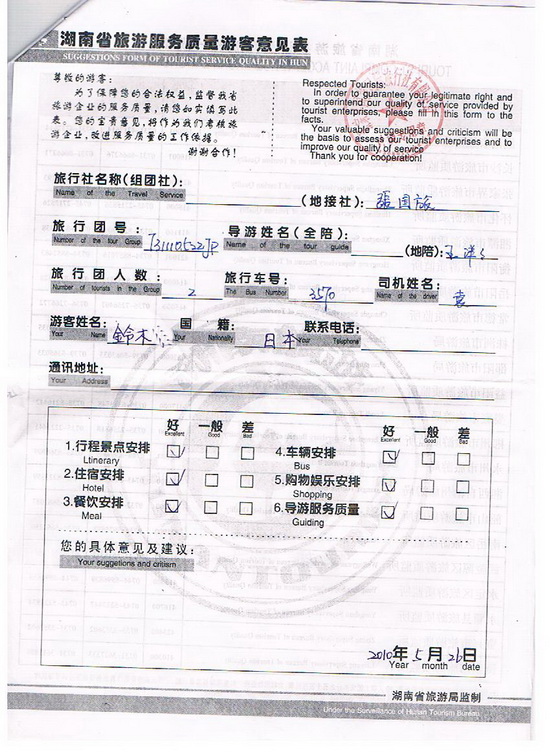 湖南省旅游服务质量游客意见表
SUGGESTIONS FORM OF TOURIST SERVICE QUALITY IN HUN
尊敬的游客:
为了保障您的合法权益,监督我省
旅游企业的服务质量,请您如实填写此
表。您的宝贵意见,将作为我们考核旅
游企业,改进服务质量的工作依据。
谢谢合作!
Respected Tourists:
In order to guarantee your legitimate right and
to superintend our quality of service provided by
tourist enterprises, please fill in this form to the
facts.
Your valuable suggestions and criticism will be
the basis to assess our tourist enterprises and to
improve our quality of service
Thank you for cooperation!
旅行社名称(组团社):
Name of the Travel Service
(地接社): 張国旅
旅行团号: 导游姓名(全陪):
Number of the tour Group Name of the tour guide
(地陪):
旅行团人数: 2 旅行车号: 3570 司机姓名: 袁
Number of tourists in the Group The Bus Number Name of the driver
游客姓名: 鈴木 国籍: 日本 联系电话:
Your Name Your Nationality Your Telephone
通讯地址:
Your Address
好 一般 差 好 一般 差
Excellent Good Bad Excellent Good Bad
1.行程景点安排 4.车辆安排
Ltinerary Bus
2.住宿安排 5.购物娱乐安排
Hotel Shopping
3.餐饮安排 6.导游服务质量
Meal Guiding
您的具体意见及建议:
Your suggetions and critism
2010年5月26日
Year month date
湖南省旅游局监制
Under the Surveillance of Hunan Tourism Bureau